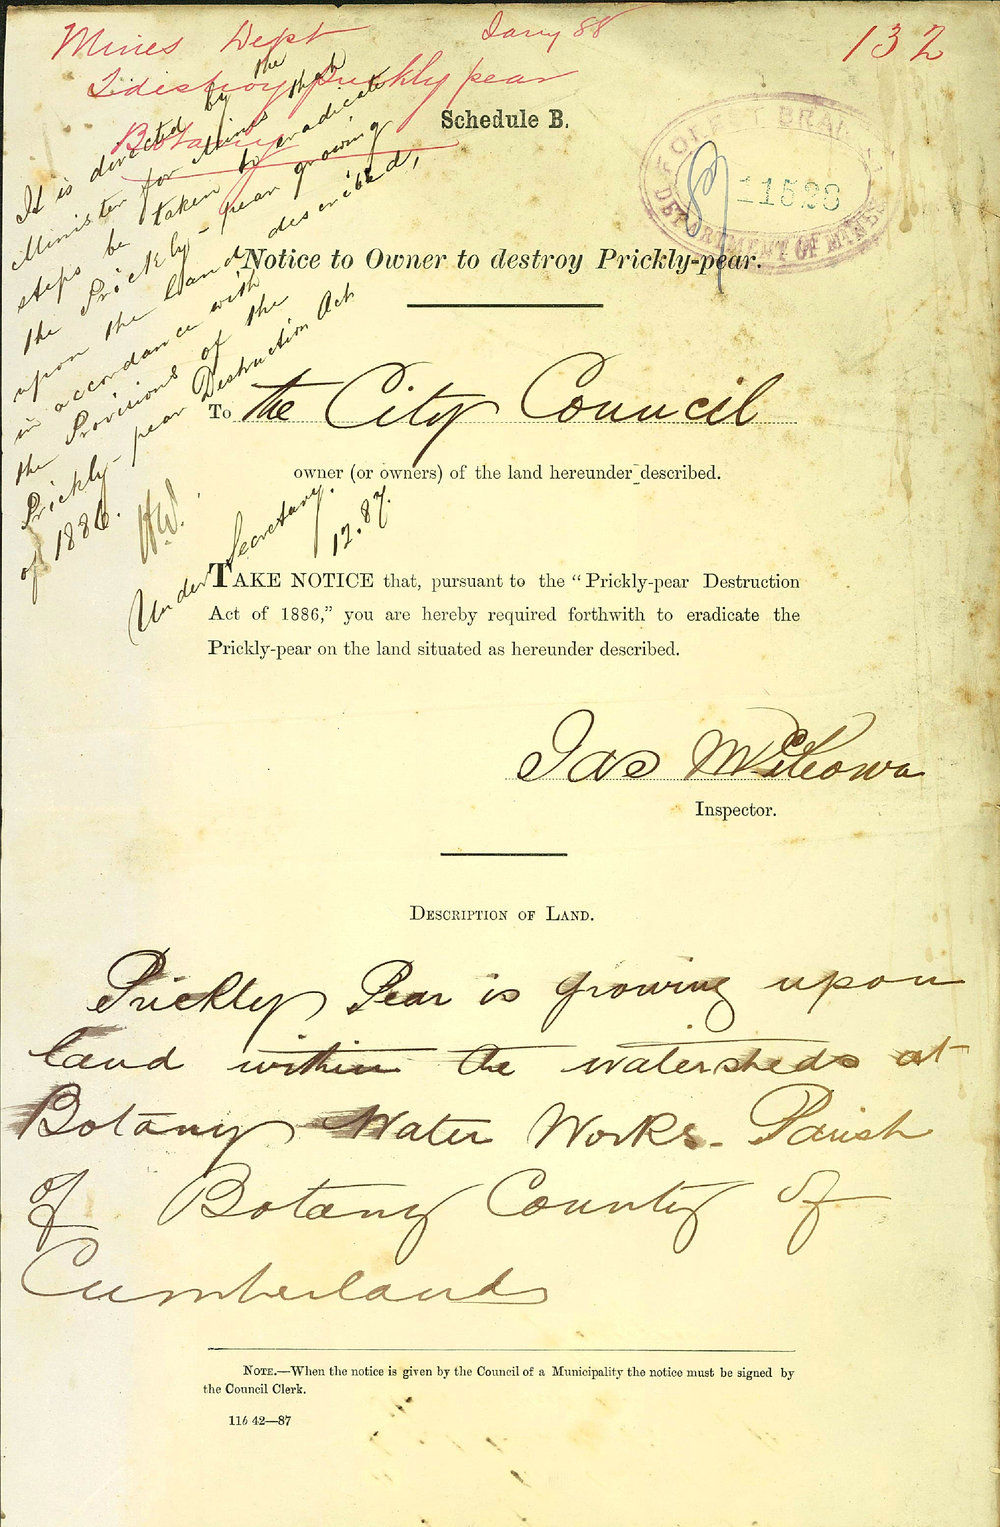 Mines Dept Jany 88
132
To destroy prickly pear
Botany
Schedule B.
DEPARTMENT OF MINES
87 11598
It is directed by the
Minister for Mines that
steps be taken to eradicate
the Prickly-pear growing
upon the land described,
in accordance with
the Provisions of the
Prickly-pear Destruction Act
of 1886.
H.W.
Under Secretary.
12.87.
Notice to Owner to destroy Prickly-pear.
To the City Council
owner (or owners) of the land hereunder described.
TAKE NOTICE that, pursuant to the "Prickly-pear Destruction
Act of 1886," you are hereby required forthwith to eradicate the
Prickly-pear on the land situated as hereunder described.
Jas
Inspector.
DESCRIPTION OF LAND.
Prickly Pear is growing upon
land within the watersheds at
Botany Water Works - Parish
of Botany County of
Cumberland
NOTE.—When the notice is given by the Council of a Municipality the notice must be signed by
the Council Clerk.
116 42—87